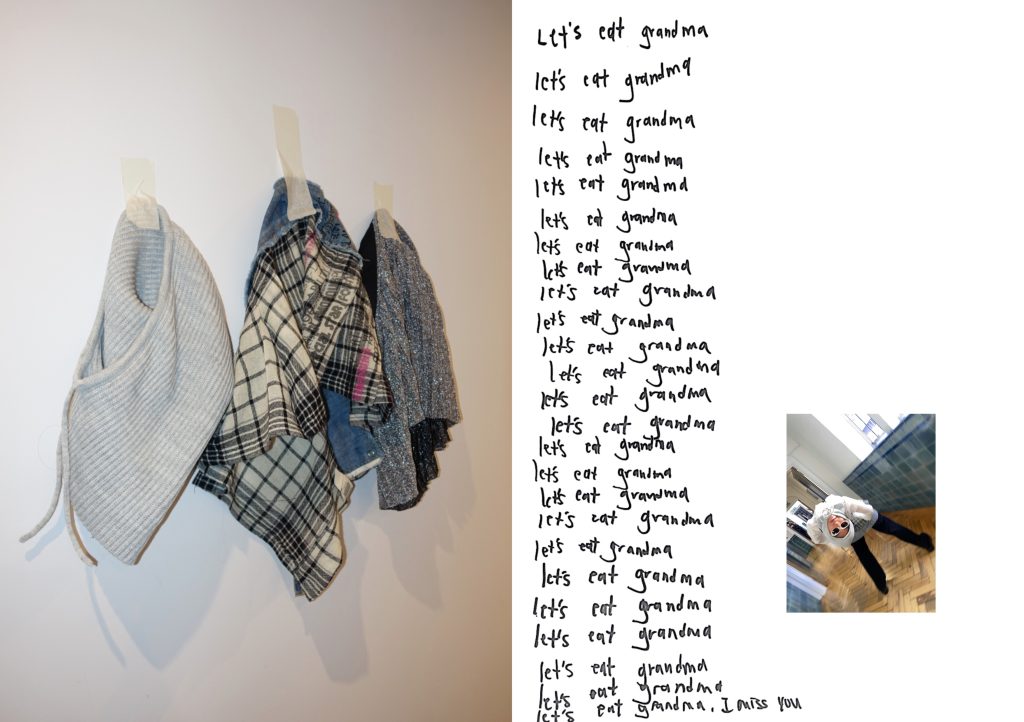 Let's eat grandma
let's eat grandma
let's eat grandma
let's eat grandma
let's eat grandma
let's eat grandma
let's eat grandma
let's eat grandma
let's eat grandma
let's eat grandma
let's eat grandma
let's eat grandma
let's eat grandma
let's eat grandma
let's eat grandma
let's eat grandma
let's eat grandma
let's eat grandma
let's eat grandma
let's eat grandma
let's eat grandma
let's eat grandma
let's eat grandma
let's eat grandma
let's eat grandma. I miss YOU